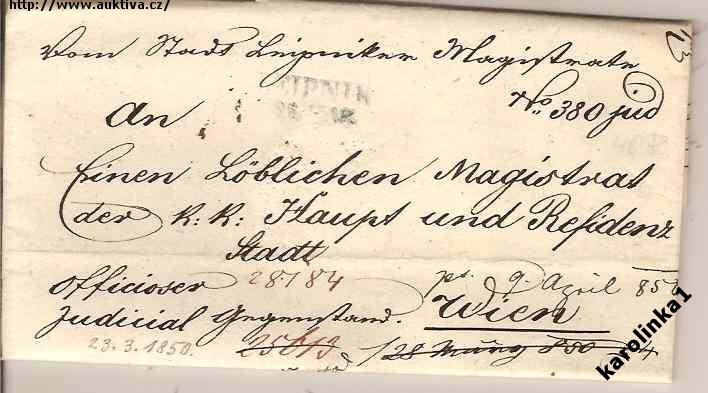 http://www.auktiva.cz/
Vom Stadt Leipniker Magistrate
LEIPNIK
No. 380 jud
An
Einen Löblichen Magistrat
der K: K: Haupt und Residenz
Stadt
Officioser 28784 ps. 9. April 850
Judicial Gegenstand. Wien
23. 3. 1850. 25613 28 März 850
karolinka1